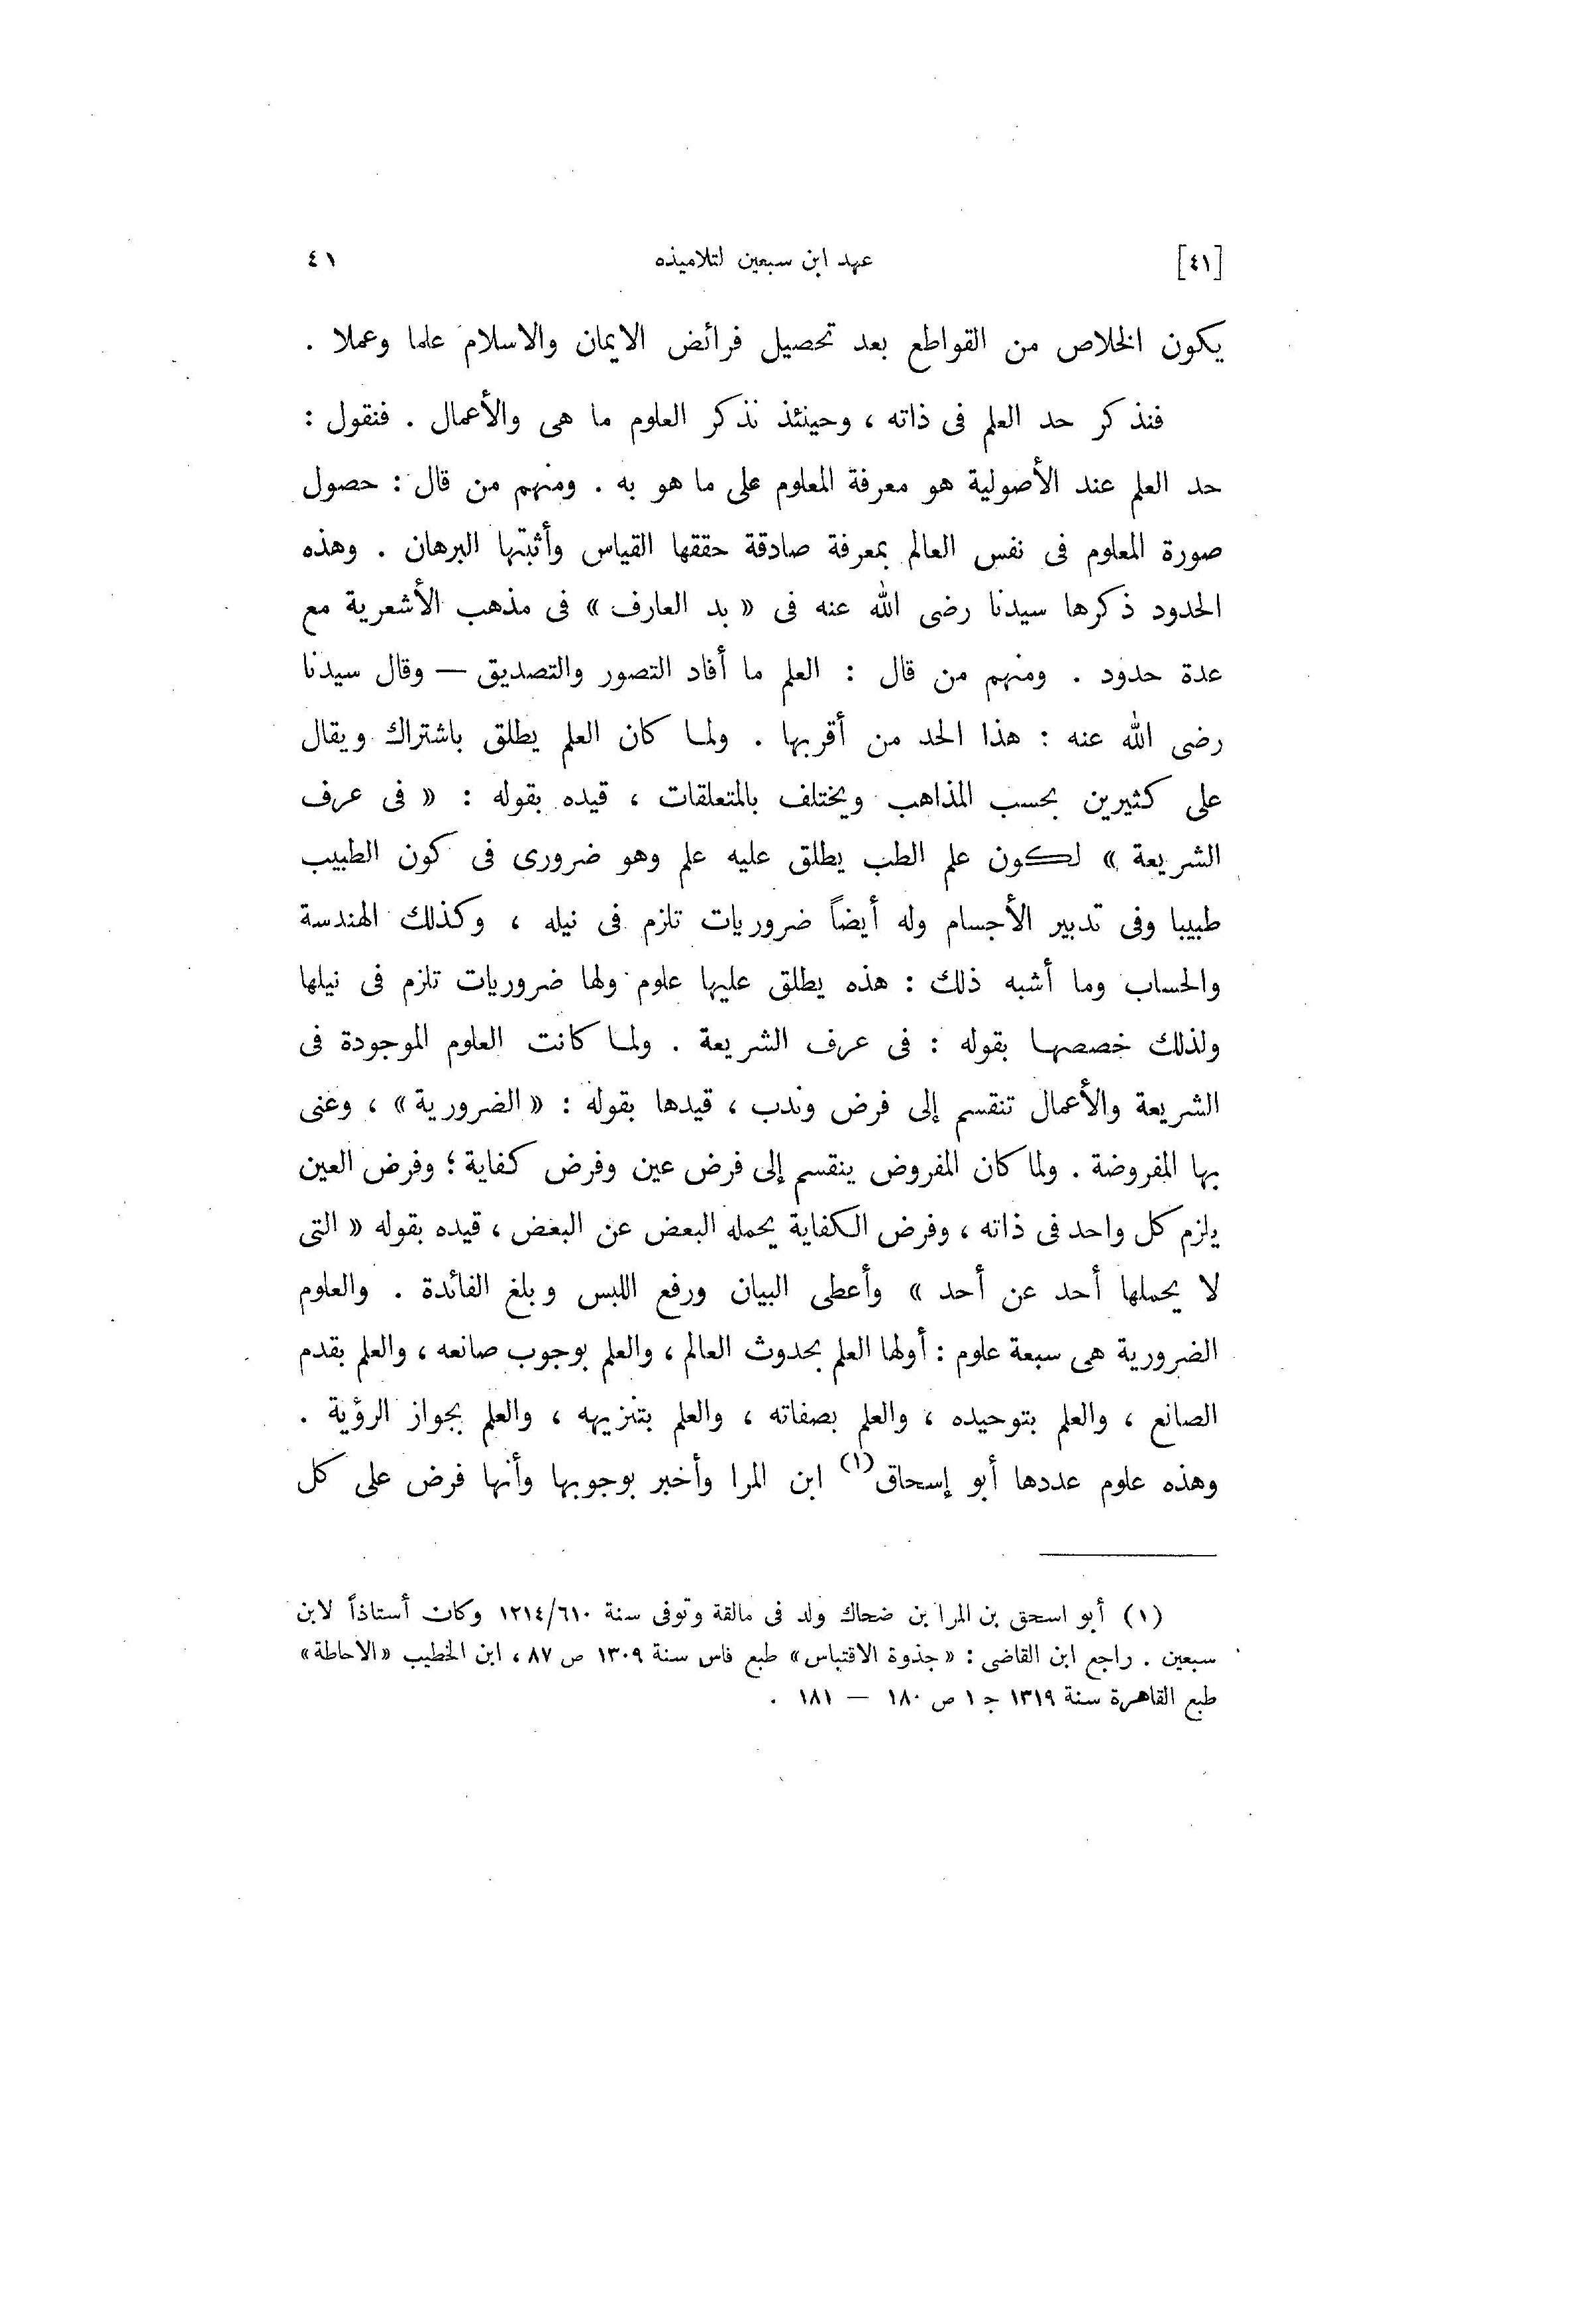 [٤١] عهد ابن سبعين لتلاميذه ٤١
يكون الخلاص من القواطع بعد تحصيل فرائض الايمان والاسلام علما وعملا .
فنذكر حد العلم فى ذاته ، وحينئذ نذكر العلوم ما هى والأعمال . فنقول :
حد العلم عند الأصولية هو معرفة المعلوم على ما هو به . ومنهم من قال : حصول
صورة المعلوم فى نفس العالم بمعرفة صادقة حققها القياس وأثبتها البرهان . وهذه
الحدود ذكرها سيدنا رضى الله عنه فى « بد العارف » فى مذهب الأشعرية مع
عدة حدود . ومنهم من قال : العلم ما أفاد التصور والتصديق — وقال سيدنا
رضى الله عنه : هذا الحد من أقربها . ولما كان العلم يطلق باشتراك ويقال
على كثيرين بحسب المذاهب ويختلف بالمتعلقات ، قيده بقوله : « فى عرف
الشريعة » لكون علم الطب يطلق عليه علم وهو ضرورى فى كون الطبيب
طبيبا وفى تدبير الأجسام وله أيضاً ضروريات تلزم فى نيله ، وكذلك الهندسة
والحساب وما أشبه ذلك : هذه يطلق عليها علوم ولها ضروريات تلزم فى نيلها
ولذلك خصصها بقوله : فى عرف الشريعة . ولما كانت العلوم الموجودة فى
الشريعة والأعمال تنقسم إلى فرض وندب ، قيدها بقوله : « الضرورية » ، وعنى
بها المفروضة . ولما كان المفروض ينقسم إلى فرض عين وفرض كفاية ؛ وفرض العين
يلزم كل واحد فى ذاته ، وفرض الكفاية يحمله البعض عن البعض ، قيده بقوله « التى
لا يحملها أحد عن أحد » وأعطى البيان ورفع اللبس وبلغ الفائدة . والعلوم
الضرورية هى سبعة علوم : أولها العلم بحدوث العالم ، والعلم بوجوب صانعه ، والعلم بقدم
الصانع ، والعلم بتوحيده ، والعلم بصفاته ، والعلم بتنزيهه ، والعلم بجواز الرؤية .
وهذه علوم عددها أبو إسحاق(١) ابن المرا وأخبر بوجوبها وأنها فرض على كل
(١) أبو اسحق بن المرا بن ضحاك ولد فى مالقة وتوفى سنة ١٢١٤/٦١٠ وكان أستاذاً لابن
سبعين . راجع ابن القاضى : « جذوة الاقتباس » طبع فاس سنة ١٣٠٩ ص ٨٧ ، ابن الخطيب «الاحاطة»
طبع القاهرة سنة ١٣١٩ ج ١ ص ١٨٠ — ١٨١ .